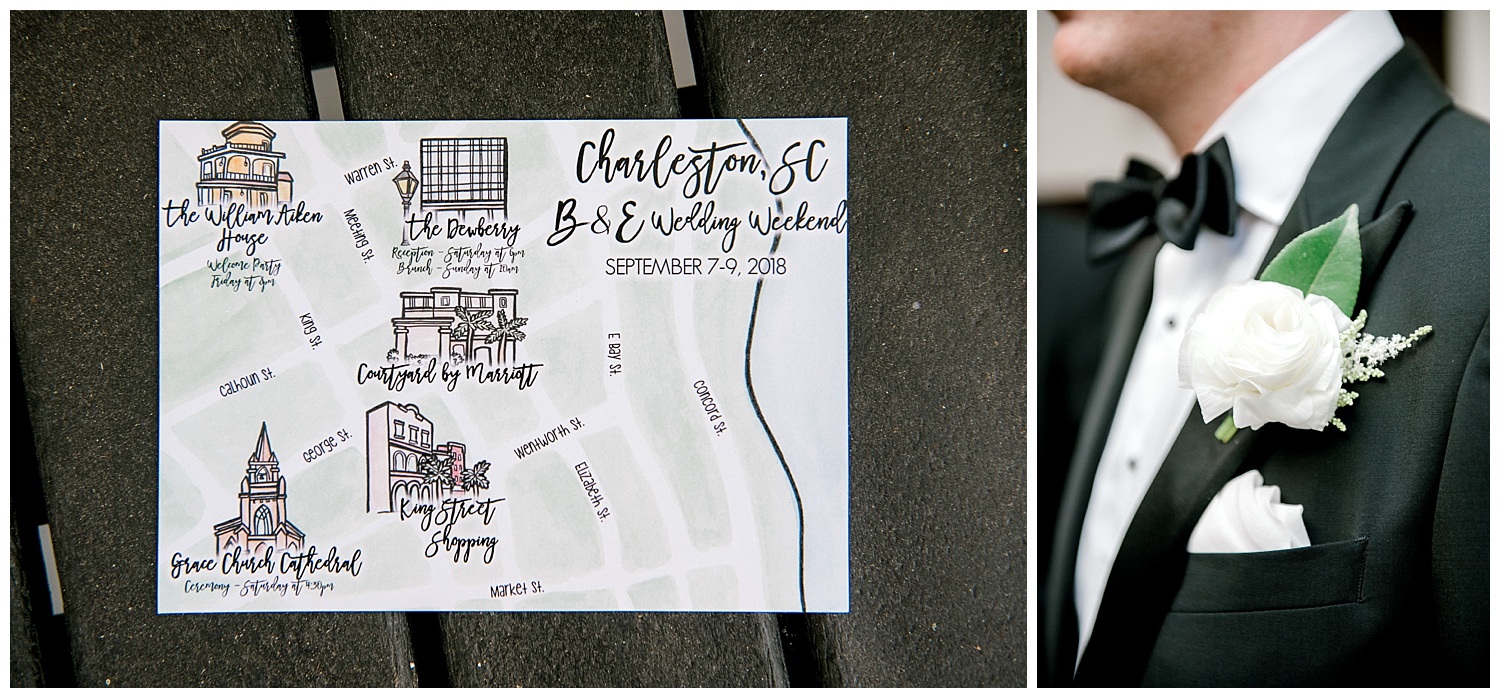 Charleston, SC
B & E Wedding Weekend
SEPTEMBER 7-9, 2018
the William Aiken
House
Welcome Party
Friday at 8pm
Warren St.
Meeting St.
the Dewberry
Reception - Saturday at 6pm
Brunch - Sunday at 10am
King St.
Courtyard by Marriott
E Bay St.
Calhoun St.
Concord St.
George St.
Wentworth St.
Elizabeth St.
King Street
Shopping
Grace Church Cathedral
Ceremony - Saturday at 4:30pm
Market St.